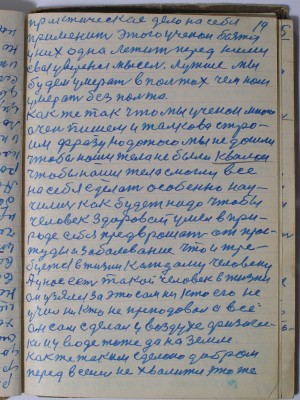 19
практическое дело на себя
применит этого ученом бытя
у них одна летит перед ними
свая увереная мысел. лутше мы
будем умерат в полтах чем нам
умерат без полта.
Как же так что мы ученом много
очен пишем и толково стро-
им фразу но до того мы не дошли
чтобы наши тела не были
чтобы наши тела смогли всё
на себя сделат особенно нау-
чимся как будет надо чтобы
человек здоровой умел в при-
роде себя предвромат от прос-
туды и заболевание что и тре-
буется в жизни каждому человеку
А у нас ест такой человек в жизни
он узялся за это сам ни кто его не
учил ни кто не преподовал а всё
он сам сделал у воздухе
ки и у воде тоже да на земле
как же таким сделано добром
перед всеми не хвалится то же